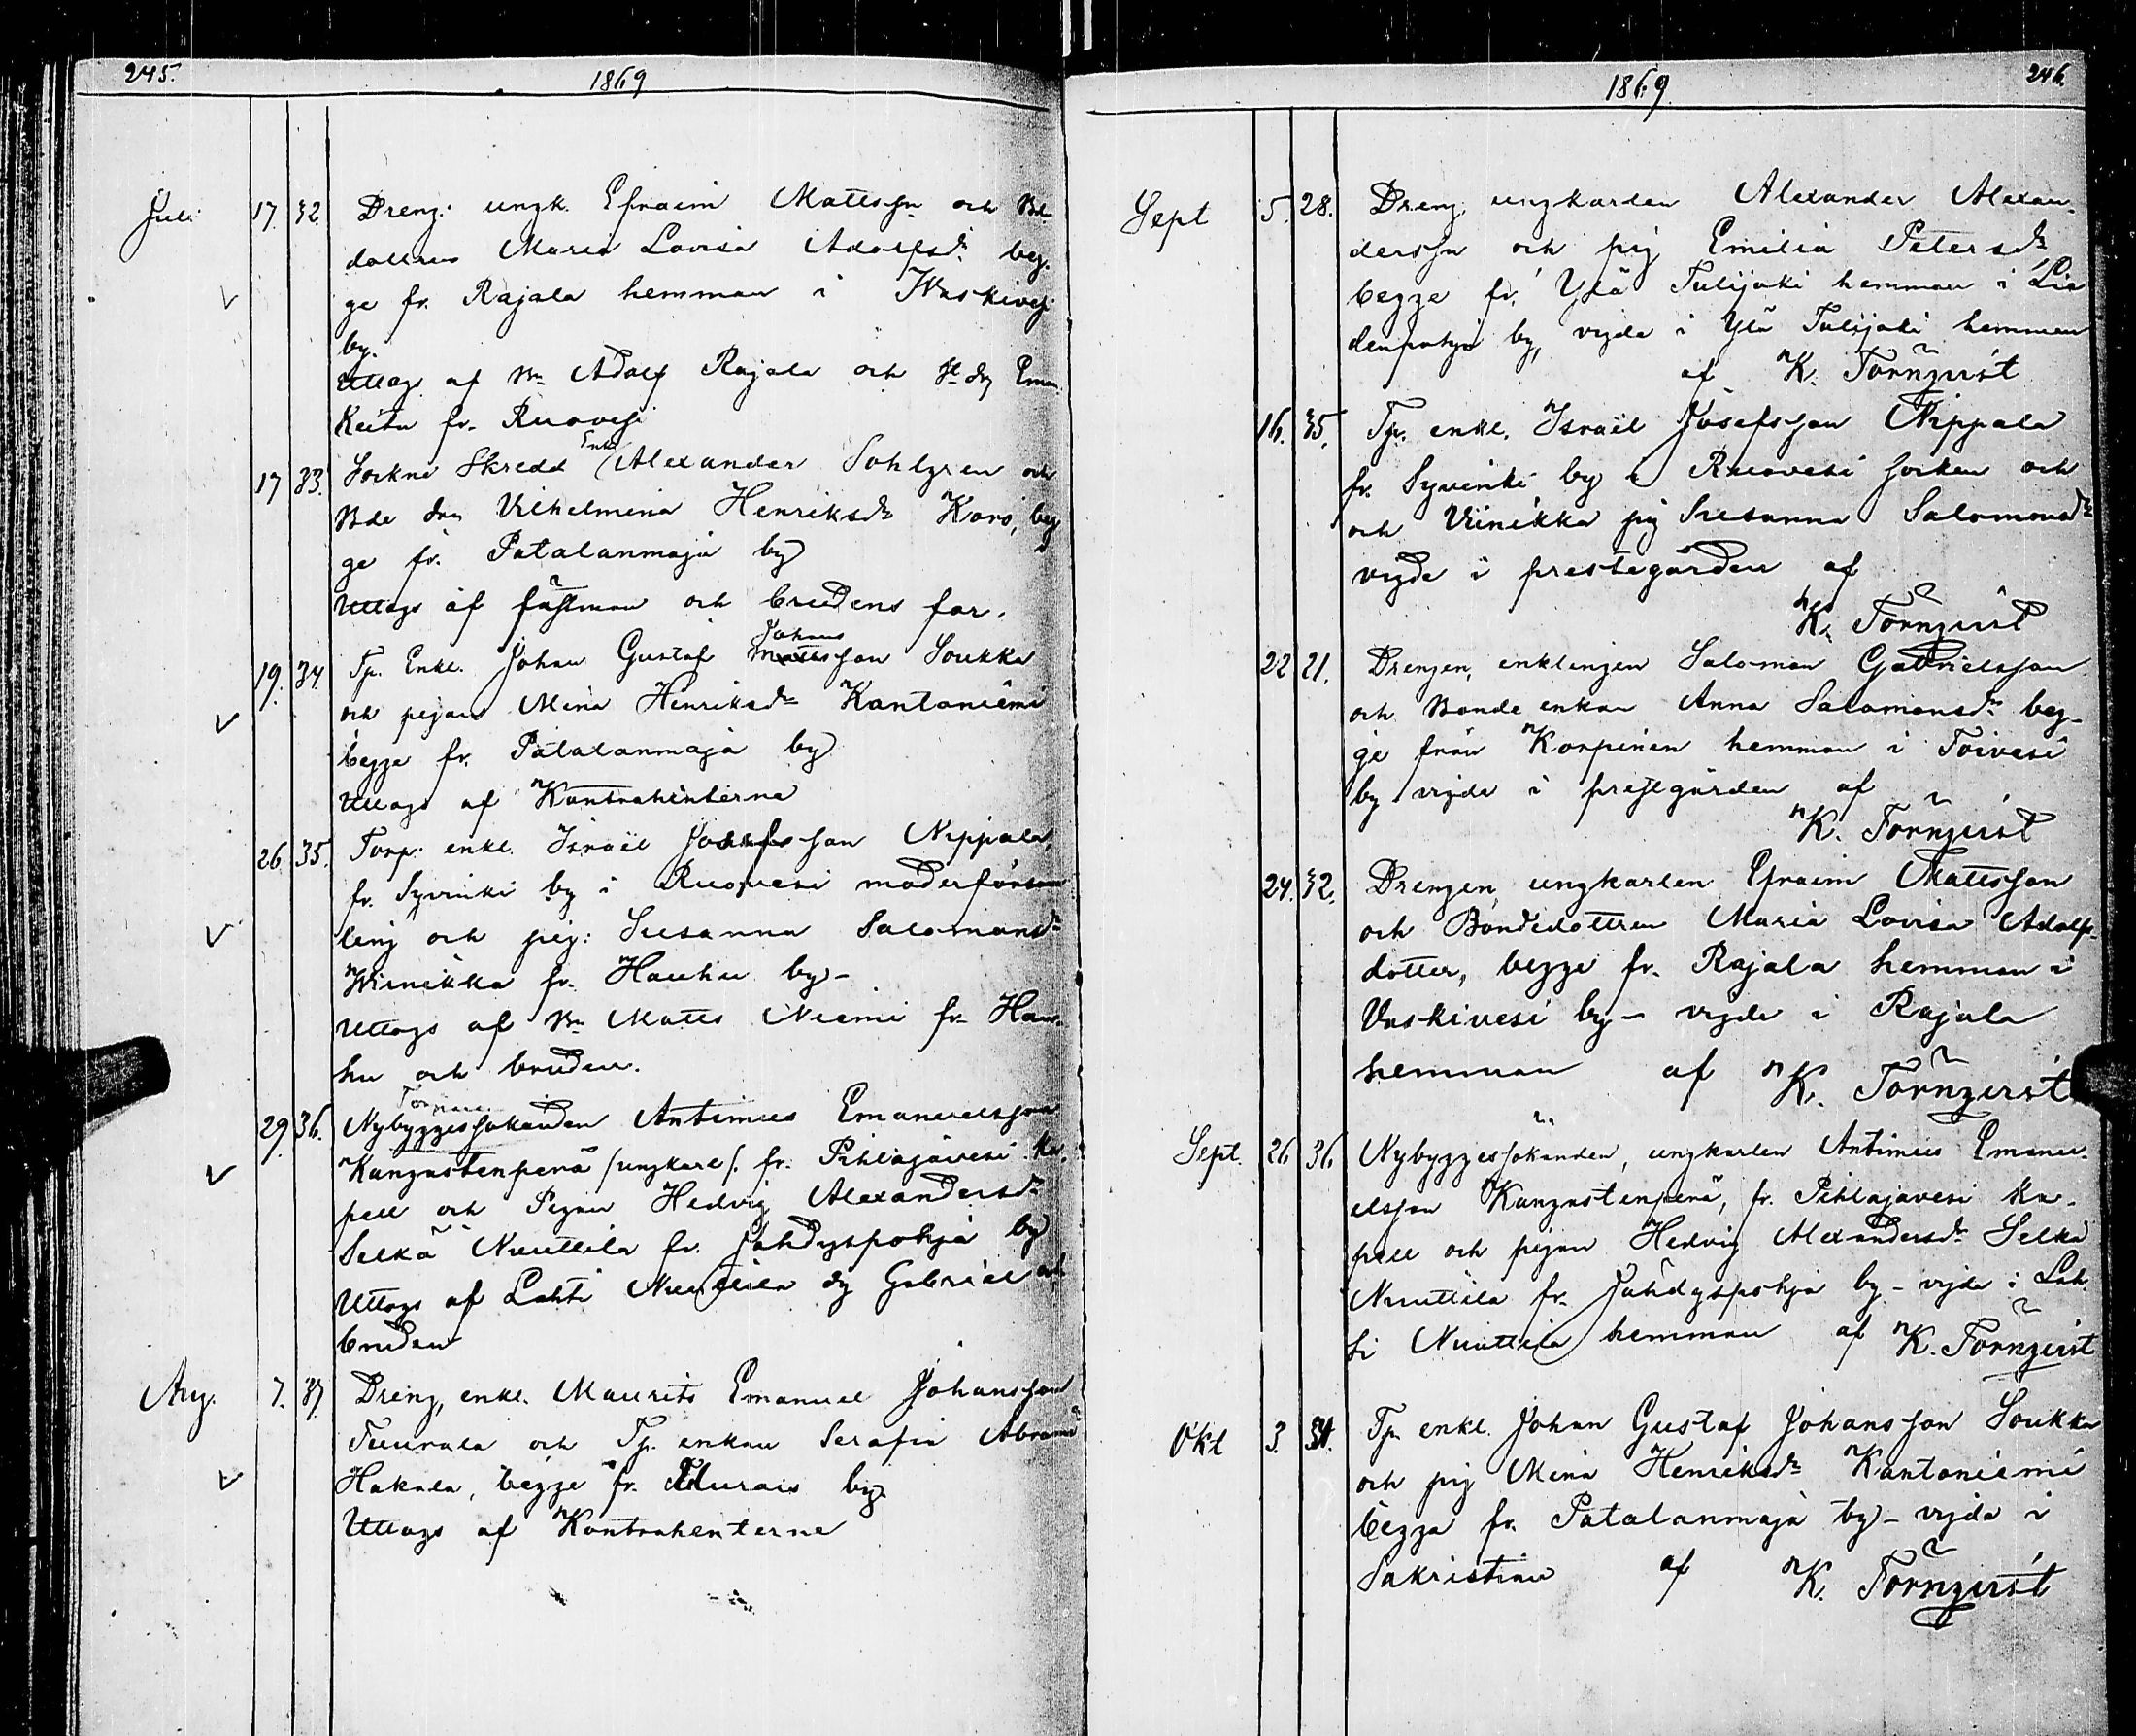 245.
1869
Juli 17. 32. Dreng. ungk. Efraim Mattsson och Bd
dottren Maria Lovisa Adolfsdr beg-
ge fr. Rajala hemman i Waskivesi
by.
Uttogs af Bn Adolf Rajala och Eman.
Keitu fr. Ruovesi
17 33. Sockne Skredd Enkl Alexander Sohlgren och
Bde Vilhelmina Henriksdr Koro, beg
ge fr. Patalanmaja by
Uttogs af fästman och brudens far.
19. 34. Tp. Enkl. Johan Gustaf Johansson Soukka
och pigan Mina Henriksdr Kantoniemi
begge fr. Patalanmaja by
Uttogs af Kontrahenterne
26. 35. Torp. enkl. Israel Josefsson Nippala,
fr. Syvinki by i Ruovesi moderförsam
ling och pig: Susanna Salomonsdr
Winikka fr. Hauhu by-
Uttogs af Bn Matts Niemi fr. Hau-
hu och bruden.
29. 36. Nybyggessökanden Antinus Emanuelsson
Kangastenperä /ungkarl/. fr. Pihlajavesi ka,
pell och Pigan Hedvig Alexandersdr
Selkä Nuuttila fr. Jähdyspohja by
Uttogs af Lahti Nuuttila Gabriel och
bruden
Aug. 7. 37. Dreng, enkl. Maurits Emanuel Johansson
Tuurala och Tp. enkan Serafia Abramsdr
Hakala, begge fr. by.
Uttogs af Kontrahenterne
246.
1869.
Sept 5. 28. Dreng. ungkarlen Alexander Alexan-
dersson och pig Emilia Petersdr
begge fr. Ylä Tulijoki hemman i Lia
denpohja by, vigde i Ylä Tulijoki hemman
af K. Törnqvist
16. 35. Tp. enkl. Israel Josefsson Nippala
fr. Syvinki by i Ruovesi socken och
och Viinikka pig Susanna Salomonsdr
vigde i prestegården af
K. Törnqvist
22 21. Drengen, enklingen Salomon Gabrielsson
och Bonde enkan Anna Salomonsdr beg-
ge från Korpinen hemman i Toivesi
by vigde i prestgården af
K. Törnqvist
24. 32. Drengen, ungkarlen Efraim Mattsson
och Bondedottren Maria Lovisa Adolfs-
dotter, begge fr. Rajala hemman i
Vaskivesi by - vigde i Rajala
hemman af K. Törnqvist
Sept. 26 36 Nybyggessökanden, ungkarlen Antinus Emanu-
elsson Kangastenperä, fr. Pihlajavesi Ka-
pell och pigan Hedvig Alexandersdr Selkä
Nuuttila fr. Jähdyspohja by - vigde i Lah
ti Nuuttila hemman af K. Törnqvist
Okt 3. 34. Tp. enkl. Johan Gustaf Johansson Soukka
och pig Mina Henriksdr Kantoniemi
begge fr. Patalanmaja by - vigde i
Sakristian af K. Törnqvist